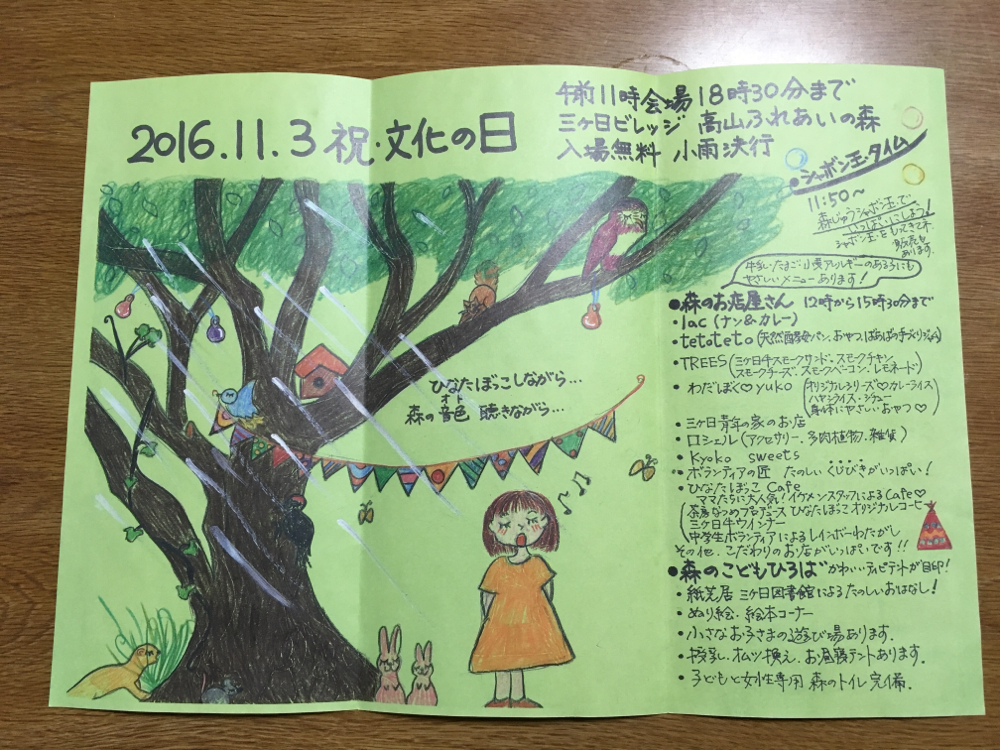 2016.11.3 祝・文化の日
午前11時会場 18時30分まで
三ヶ日ビレッジ 高山ふれあいの森
入場無料 小雨決行
・シャボン玉・タイム
11:50〜
森じゅうシャボン玉で
いっぱいにしよう！
シャボン玉をもってきてネ
販売も
あります。
牛乳・たまご・小麦アレルギーのある方にも
やさしいメニューあります！
●森のお店屋さん 12時から15時30分まで
・lac（ナン&カレー）
・tetoteto（天然酵母パン、おやつ ばあばの手づくりジャム）
・TREES（三ヶ日牛スモークサンド、スモークチキン
スモークチーズ、スモークベーコン、レモネード）
・わだぼく♡yuko（オリジナルシリーズ♡カレーライス
ハヤシライス・シチュー
身体にやさしいおやつ♡）
・三ヶ日青年の家のお店
・ロシェル（アクセサリー、多肉植物、雑貨）
・Kyoko sweets
・ボランティアの匠 たのしいくじびきがいっぱい！
・ひなたぼっこ Cafe
ママたちに大人気！イケメンスタッフによるCafe♡
茶房なつめプロデュース ひなたぼっこオリジナルコーヒー
三ヶ日牛ウインナー
中学生ボランティアによるレインボーわたがし
その他、こだわりのお店がいっぱいです!!
●森のこどもひろば かわいいティピテントが目印！
・紙芝居 三ヶ日図書館によるたのしいおはなし！
・ぬり絵・絵本コーナー
・小さなお子さまの遊び場あります。
・授乳、オムツ換え、お昼寝テントあります。
・子どもと女性専用 森のトイレ完備。
ひなたぼっこしながら…
オト
森の音色 聴きながら…